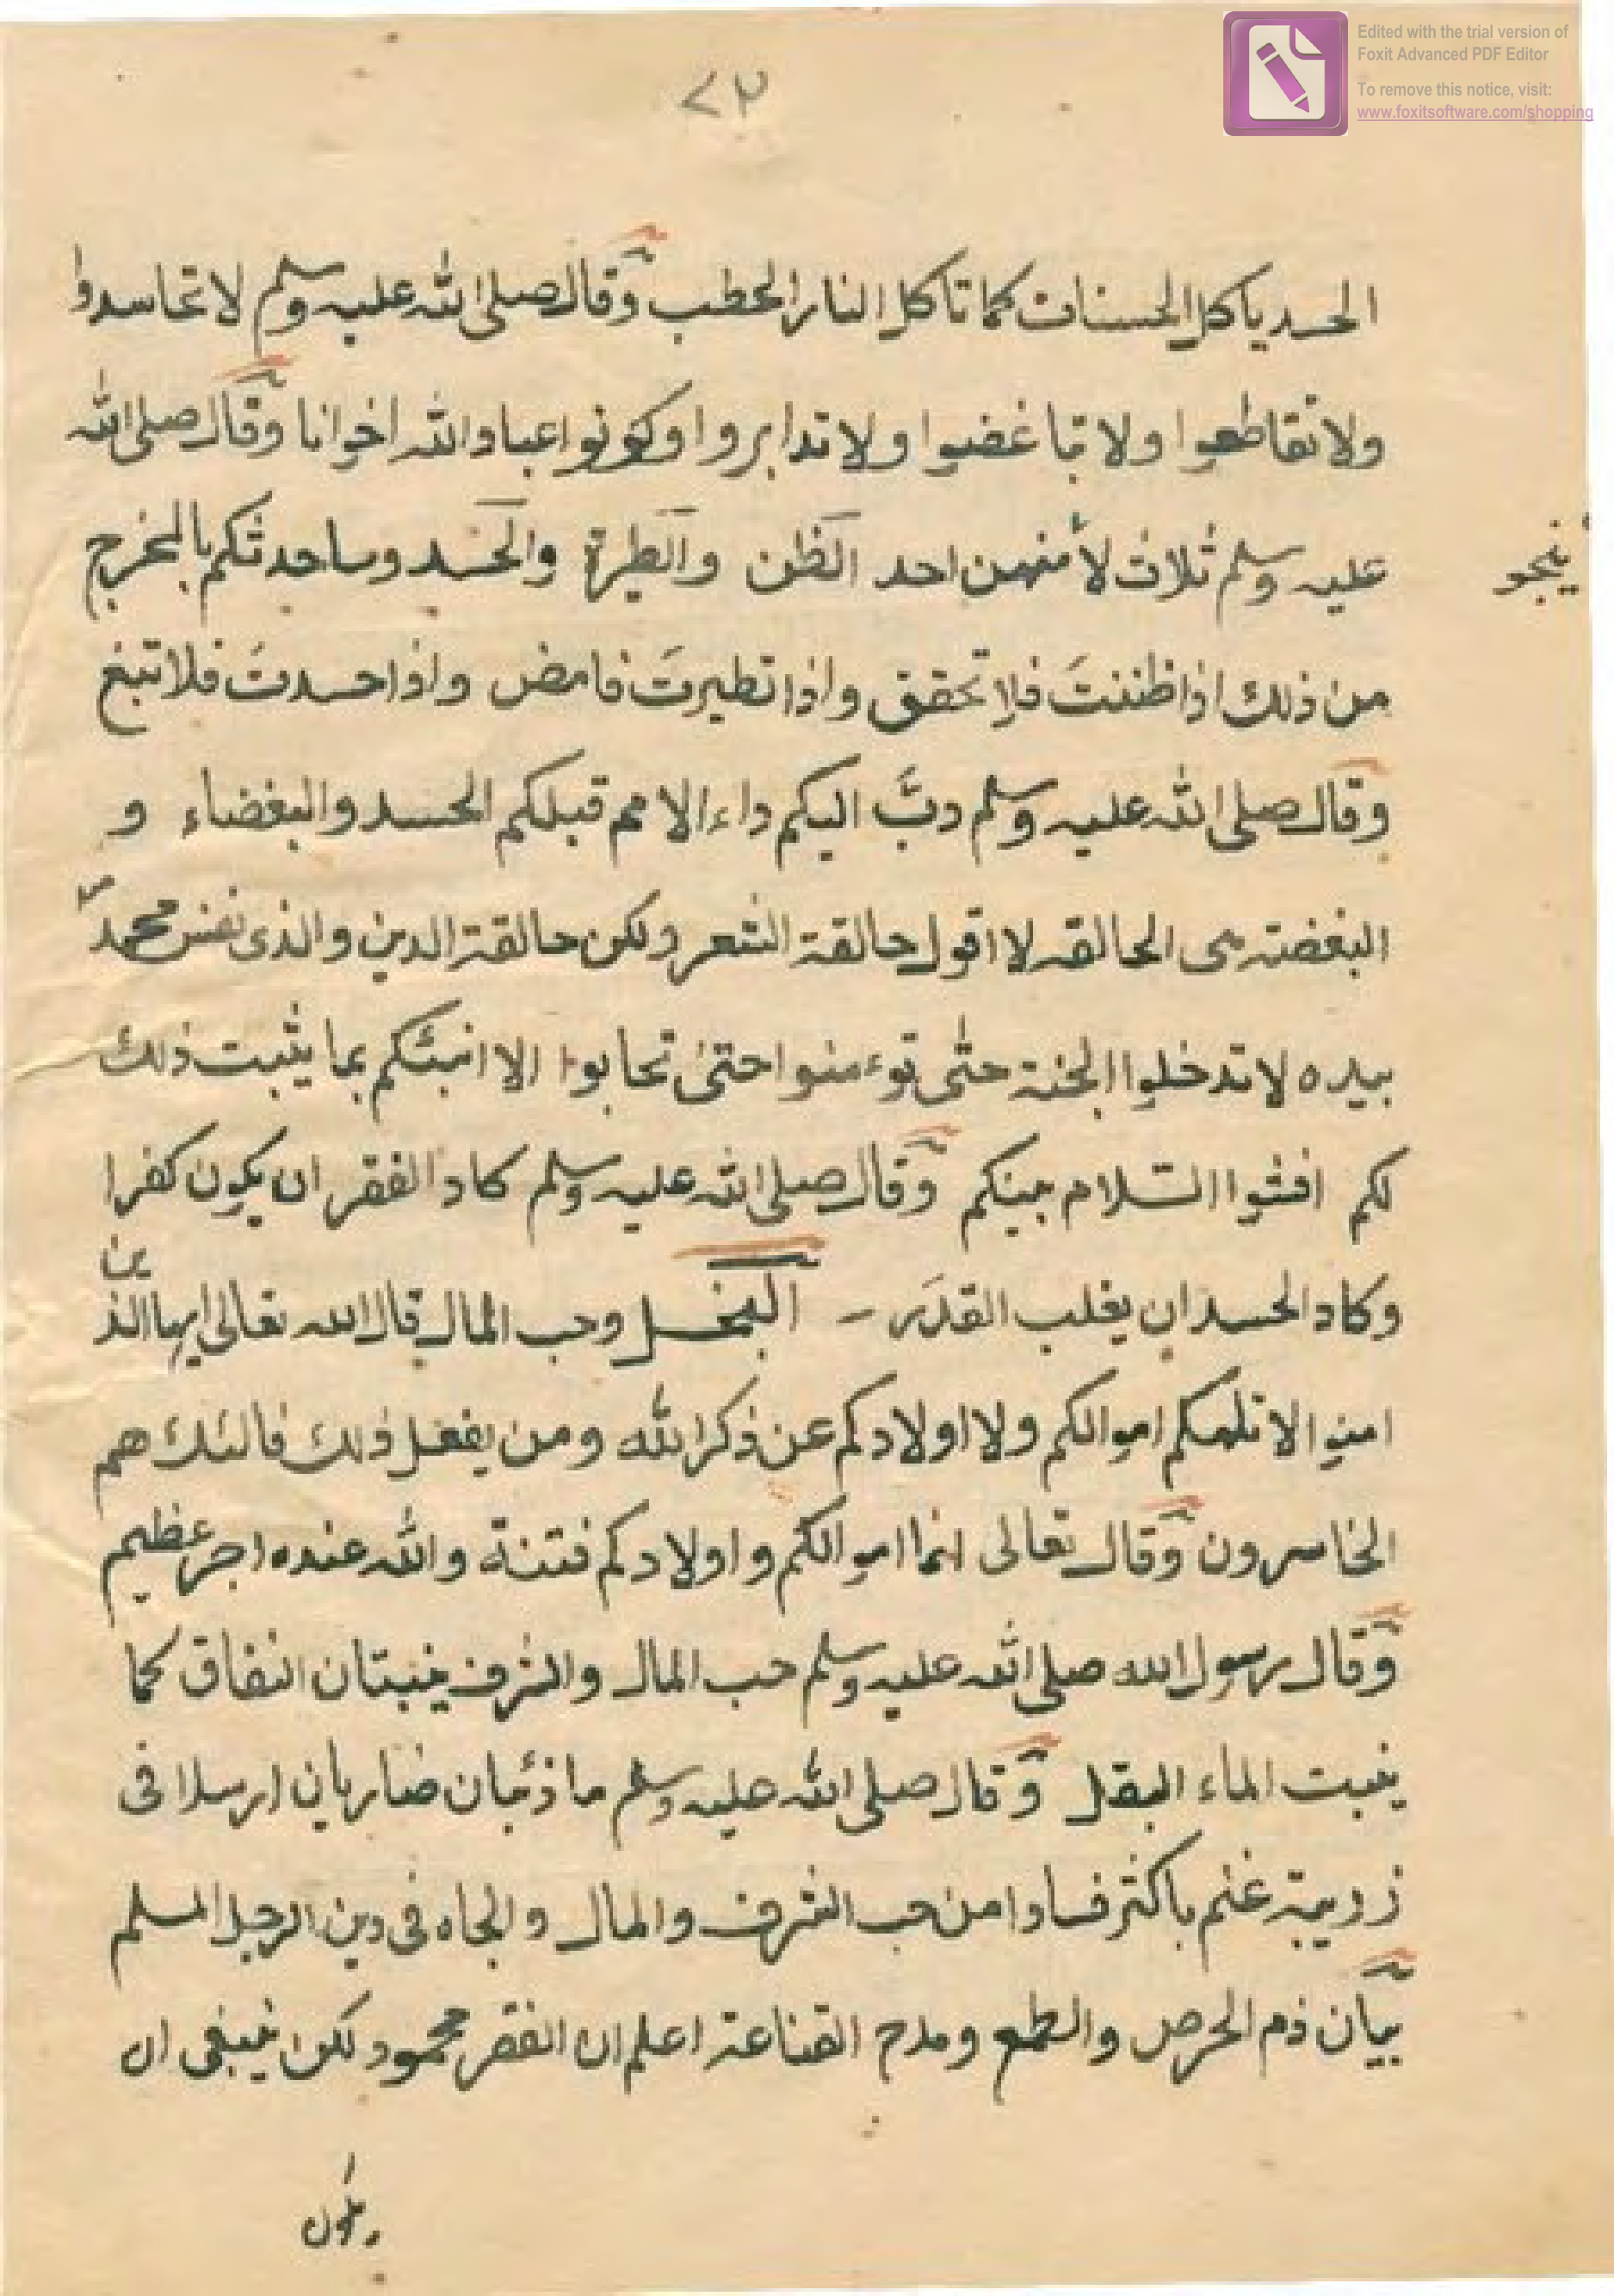 Edited with the trial version of
Foxit Advanced PDF Editor
To remove this notice, visit:
www.foxitsoftware.com/shopping
الحسد يا كل الحسنات كما تاكل النار الحطب وقال صلى الله عليه وسلم لا تحاسدوا
ولا تقاطعوا ولا تباغضوا ولا تدابروا وكونوا عباد الله اخوانا وقال صلى الله
عليه وسلم ثلاث لا منهن احد الظن والطيرة والحسد وساحدثكم بالمخرج
ينجو
من ذلك اذا ظننتَ فلا تحقق واذا تطيرتَ فامض واذا حسدتَ فلا تبغ
وقال صلى الله عليه وسلم دبَّ اليكم داء الامم قبلكم الحسد والبغضاء و
البغضته هى الحالقه لا اقول حالقة الشعر ولكن حالقة الدين والذى نفس محمد
بيده لا تدخلوا الجنة حتى توءمنوا حتىٰ تحابوا الا انبئكم بما يثبت ذلك
لكم افشوا السّلام بينكم وقال صلى الله عليه وسلم كاد الفقر ان يكون كفرا
وكاد الحسد ان يغلب القدَر – البخل وحب المال قال الله تعالى ايها الذين
امنوا لا تلهكم اموالكم ولا اولادكم عن ذكر الله ومن يفعل ذلك فالئك هم
الخاسرون وقال تعالى انما اموالكم واولادكم فتنة والله عنده اجر عظيم
وقال رسول الله صلى الله عليه وسلم حب المال والشرف ينبتان النفاق كما
ينبت الماء البقل وقال صلى الله عليه وسلم ما ذئبان ضاريان ارسلا فى
زريبة غنم باكثر فسادا من حب الشرف والمال والجاه فى دين الرجل المسلم
بيان ذم الحرص والطمع ومدح القناعة اعلم ان الفقر محمود لكن ينبغى ان